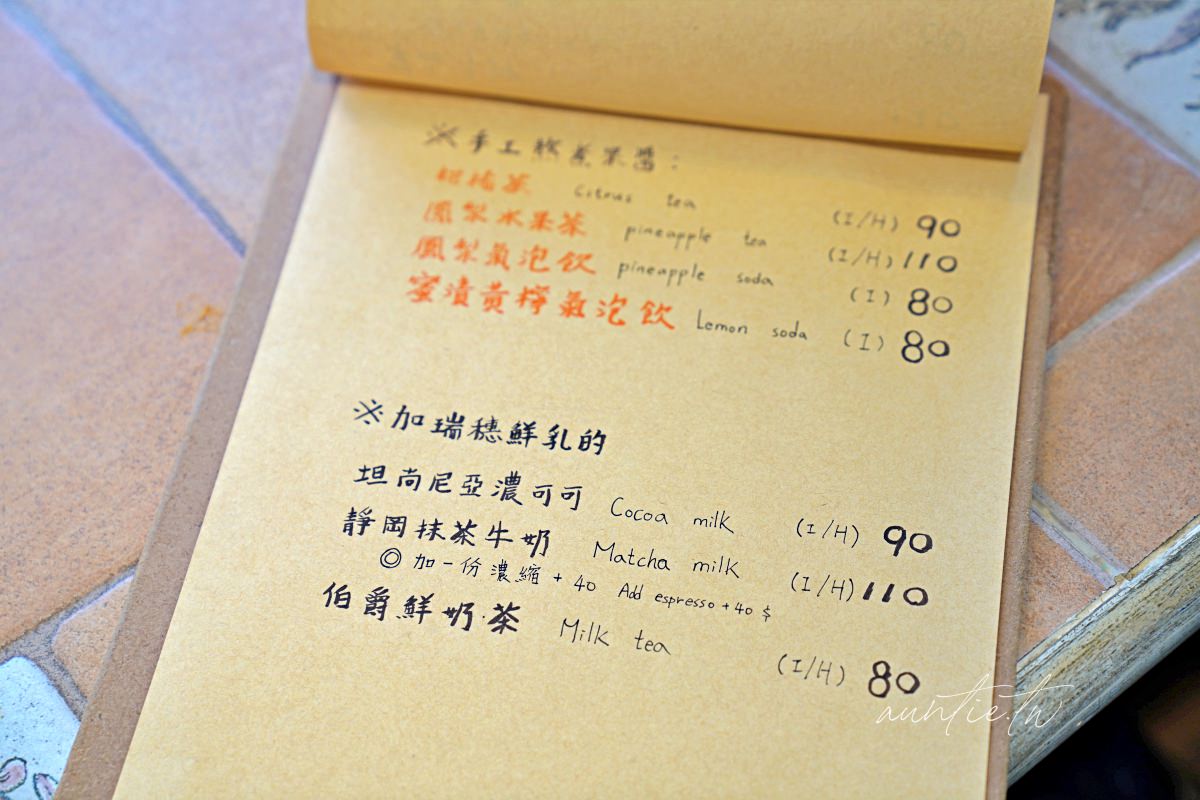 ※手工熬煮果醬：
柑橘茶 Citrus tea (I/H) 90
鳳梨水果茶 pineapple tea (I/H) 110
鳳梨氣泡飲 pineapple soda (I) 80
蜜漬黃檸氣泡飲 Lemon soda (I) 80
※加瑞穗鮮乳的
坦尚尼亞濃可可 Cocoa milk (I/H) 90
靜岡抹茶牛奶 Matcha milk (I/H) 110
◎加一份濃縮+40 Add espresso +40 $
伯爵鮮奶茶 Milk tea (I/H) 80
auntie.tw